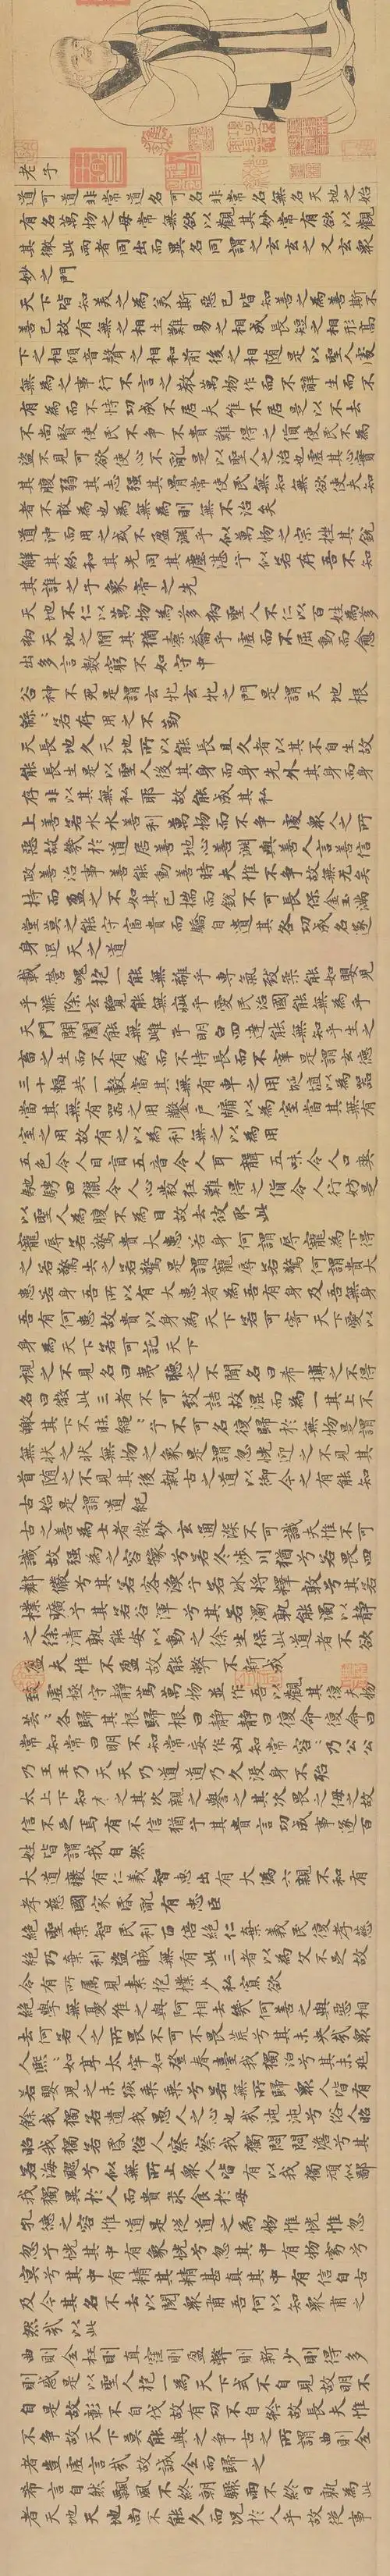 老子
道可道非常道名可名非常名無名天地之始
有名萬物之母常無欲以觀其妙常有欲以觀
其徼此兩者同出而異名同謂之玄玄之又玄衆
妙之門
天下皆知美之為美斯惡已皆知善之為善斯不
善已故有無之相生難易之相成長短之相形高
下之相傾音聲之相和前後之相隨是以聖人處
無為之事行不言之教萬物作而不辭生而不
有為而不恃功成不居夫惟不居是以不去
不尚賢使民不爭不貴難得之貨使民不為
盜不見可欲使心不亂是以聖人之治也虛其心實
其腹弱其志強其骨常使民無知無欲使夫知
者不敢為也為無為則無不治矣
道沖而用之或不盈淵乎似萬物之宗挫其銳
解其紛和其光同其塵湛兮似若存吾不知
其誰之子象帝之先
天地不仁以萬物為芻狗聖人不仁以百姓為芻
狗天地之間其猶橐籥乎虛而不屈動而愈
出多言數窮不如守中
谷神不死是謂玄牝玄牝之門是謂天地根
綿綿若存用之不勤
天長地久天地所以能長且久者以其不自生故
能長生是以聖人後其身而身先外其身而身
存非以其無私耶故能成其私
上善若水水善利萬物而不爭處衆人之所
惡故幾於道居善地心善淵與善人言善信
政善治事善能動善時夫惟不爭故無尤矣
持而盈之不如其已揣而銳之不可長保金玉滿
堂莫之能守富貴而驕自遺其咎功成名遂
身退天之道
載營魄抱一能無離乎專氣致柔能如嬰兒
乎滌除玄覽能無疵乎愛民治國能無為乎
天門開闔能無雌乎明白四達能無知乎生之
畜之生而不有為而不恃長而不宰是謂玄德
三十輻共一轂當其無有車之用埏埴以為器
當其無有器之用鑿戶牖以為室當其無有
室之用故有之以為利無之以為用
五色令人目盲五音令人耳聾五味令人口爽
馳騁田獵令人心發狂難得之貨令人行妨是
以聖人為腹不為目故去彼取此
寵辱若驚貴大患若身何謂寵辱寵為下得
之若驚失之若驚是謂寵辱若驚何謂貴大
患若身吾所以有大患者為吾有身及吾無身
吾有何患故貴以身為天下若可寄天下愛以
身為天下若可託天下
視之不見名曰夷聽之不聞名曰希搏之不得
名曰微此三者不可致詰故混而為一其上不
皦其下不昧繩繩兮不可名復歸於無物是謂
無狀之狀無物之象是謂惚恍迎之不見其
首隨之不見其後執古之道以御今之有能知
古始是謂道紀
古之善為士者微妙玄通深不可識夫惟不可
識故強為之容豫兮若冬涉川猶兮若畏四
鄰儼兮其若客渙兮若冰將釋敦兮其若
樸曠兮其若谷渾兮其若濁孰能濁以靜
之徐清孰能安以動之徐生保此道者不欲
盈夫惟不盈故能弊不新成
致虛極守靜篤萬物並作吾以觀其復夫物
芸芸各歸其根歸根曰靜靜曰復命復命曰
常知常曰明不知常妄作凶知常容容乃公公
乃王王乃天天乃道道乃久沒身不殆
太上下知有之其次親之譽之其次畏之侮之故
信不足焉有不信猶兮其貴言功成事遂百
姓皆謂我自然
大道廢有仁義智惠出有大偽六親不和有
孝慈國家昏亂有忠臣
絕聖棄智民利百倍絕仁棄義民復孝慈
絕巧棄利盜賊無有此三者以為文不足故
令有所屬見素抱樸少私寡欲
絕學無憂唯之與阿相去幾何善之與惡相
去何若人之所畏不可不畏荒兮其未央哉衆
人熙熙如享太牢如登春臺我獨泊兮其未兆
若嬰兒之未孩乘乘兮若無所歸衆人皆有
餘我獨若遺我愚人之心也哉沌沌兮俗人昭
昭我獨若昏俗人察察我獨悶悶澹兮其
若海飂兮似無所止衆人皆有以我獨頑似鄙
我獨異於人而貴求食於母
孔德之容惟道是從道之為物惟恍惟忽
忽兮恍其中有象恍兮忽其中有物窈兮
冥兮其中有精其精甚真其中有信自古
及今其名不去以閱衆甫吾何以知衆甫之
然哉以此
曲則全枉則直窪則盈弊則新少則得多
則惑是以聖人抱一為天下式不自見故明不
自是故彰不自伐故有功不自矜故長夫惟
不爭故天下莫能與之爭古之所謂曲則全
者豈虛言哉故誠全而歸之
希言自然飄風不終朝驟雨不終日孰為此
者天地天地尚不能久而況於人乎故從事